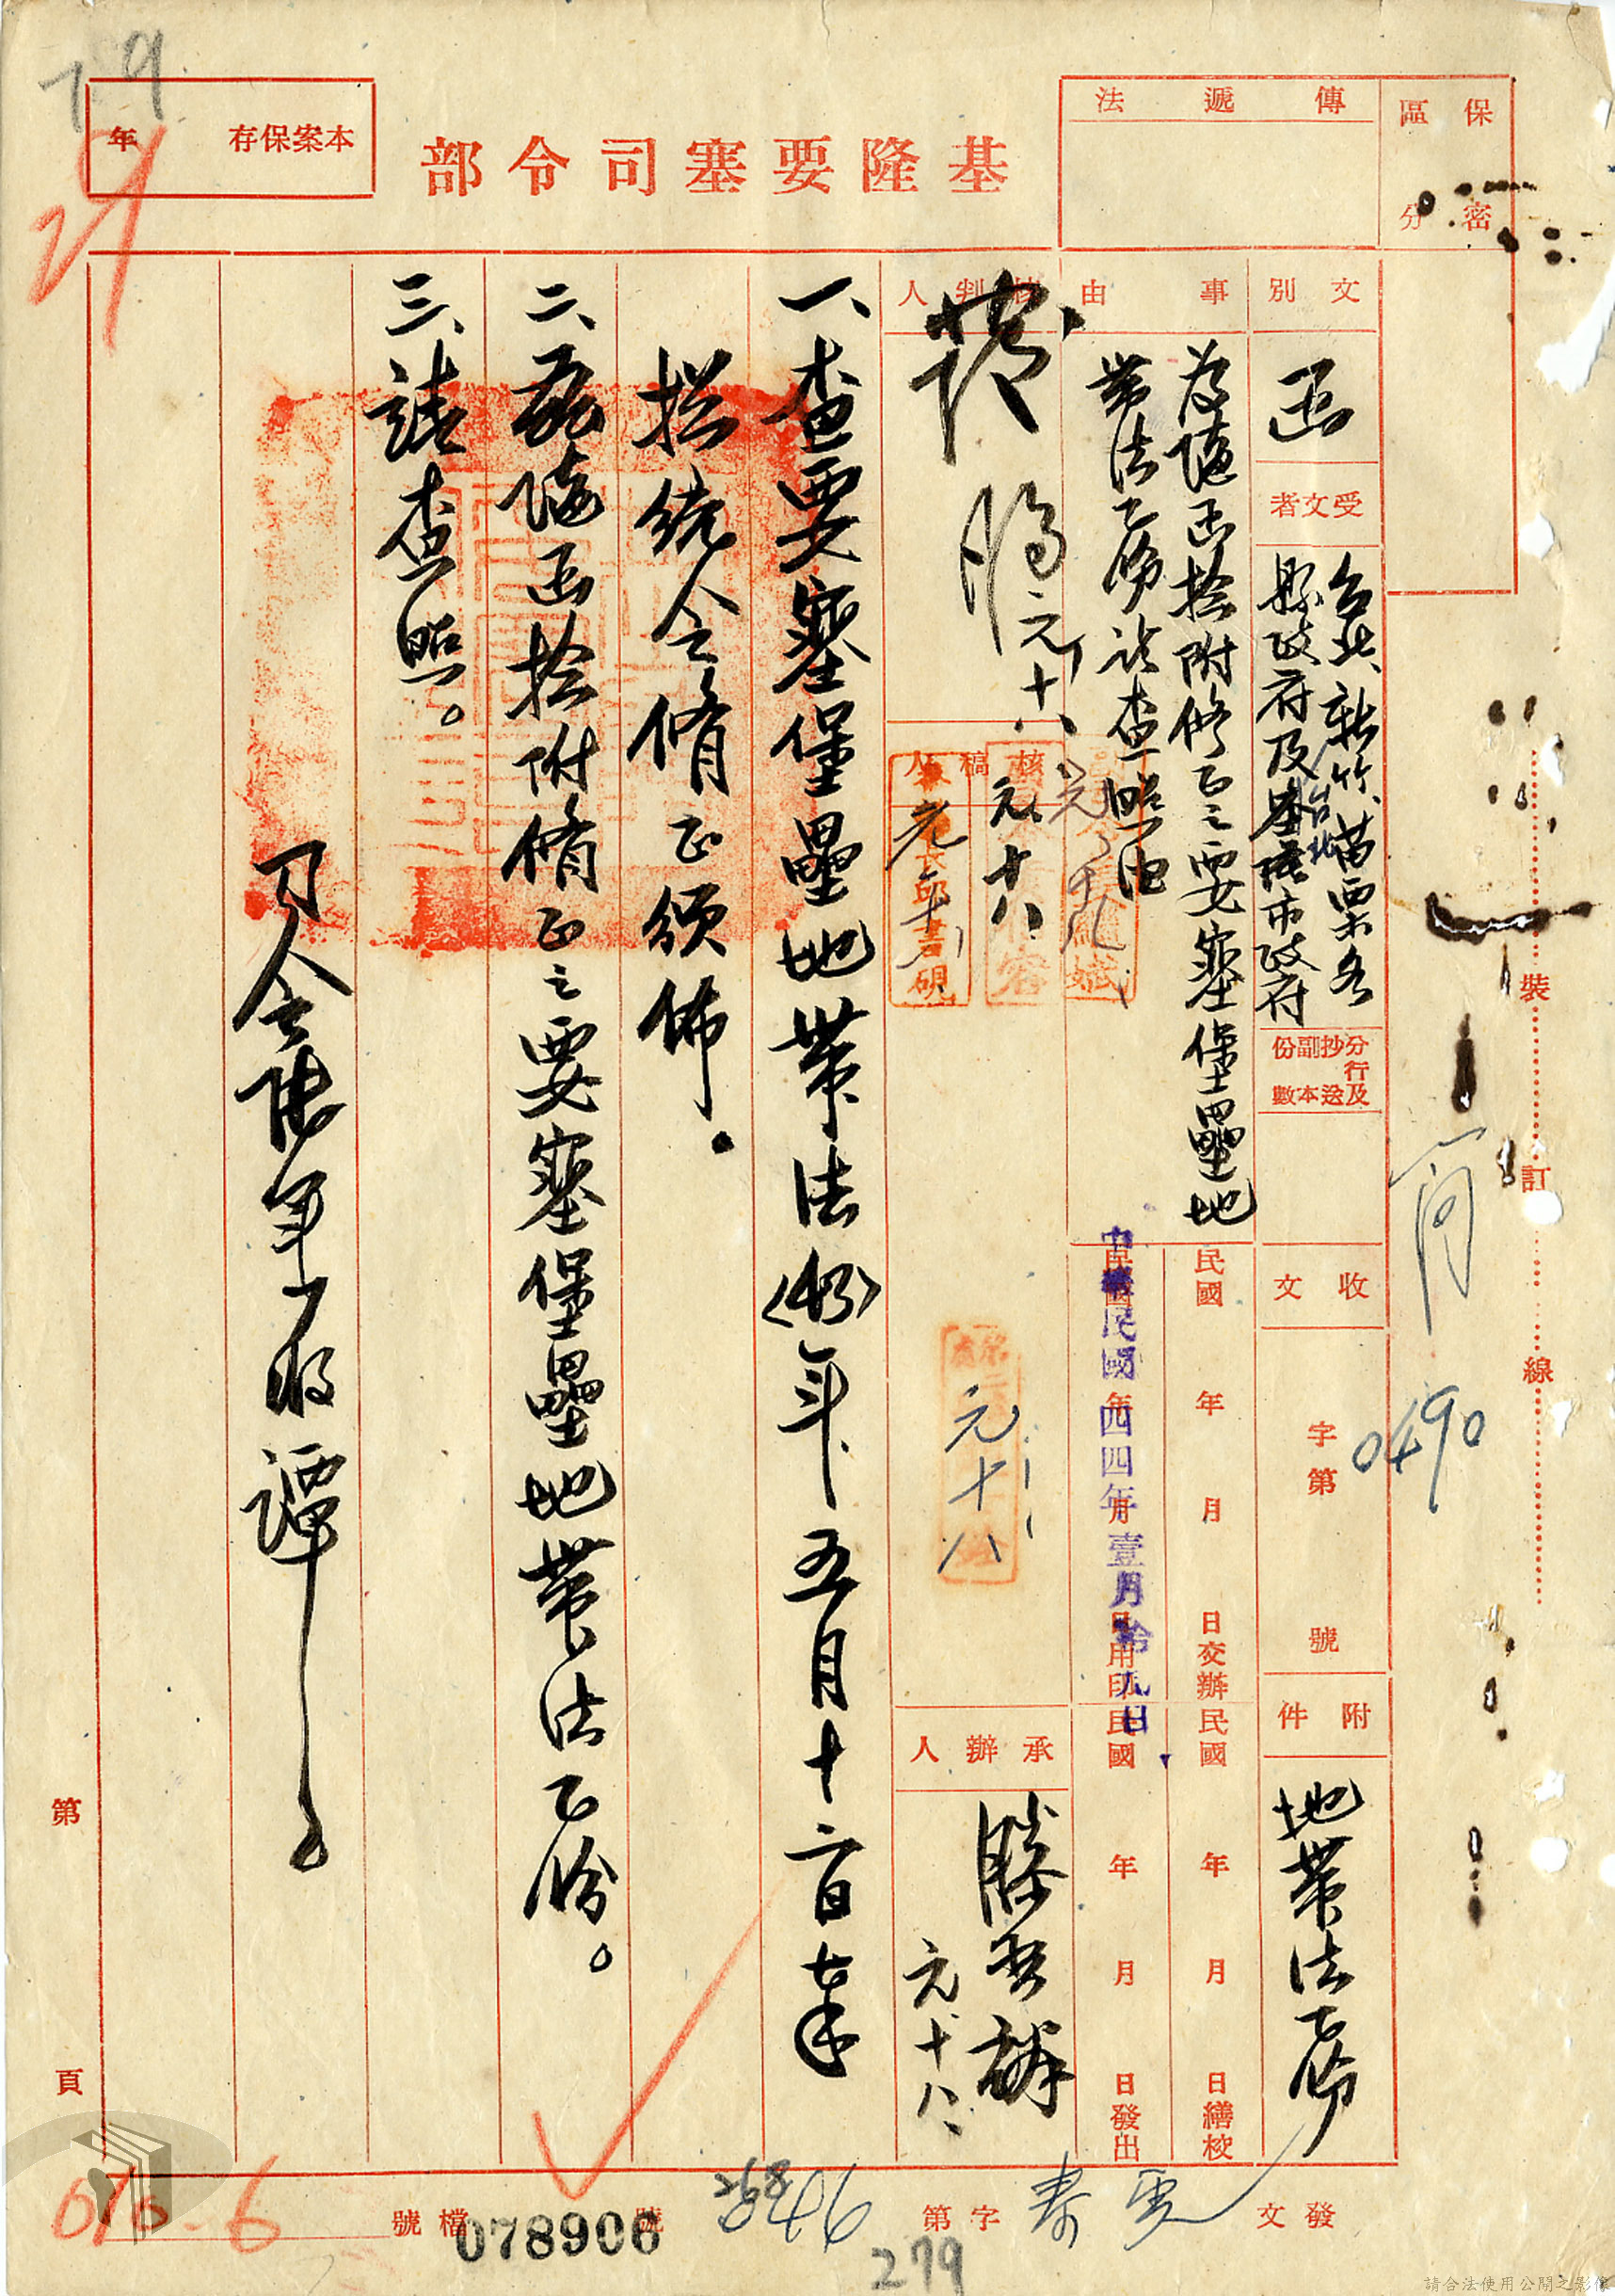 保密
區分
傳遞法
基隆要塞司令部
本案保存 年
79
文別
函
受文者
台北、新竹、苗栗各
縣政府及基隆市政府
台北
分行及抄送副本份數
收文
字第 號
0490
附件
地帶法乙份
事由
為隨函檢附修正之要塞堡壘地
帶法乙份請查照由
民國 年 月 日交辦
民國 年 月 日繕校
民國 年 月 日用印
中華民國四四年壹月拾九日
民國 年 月 日發出
核判人
元、十八
核稿人
元、十八
元十八
承辦人
元、十八、
一、查要塞堡壘地帶法〈43〉年五月十二日奉
總統令修正頒佈。
二、茲隨函檢附修正之要塞堡壘地帶法乙份。
三、請查照。
司令
裝訂線
第 頁
發文
字第
號
檔號
078906
279
請合法使用公開之影像